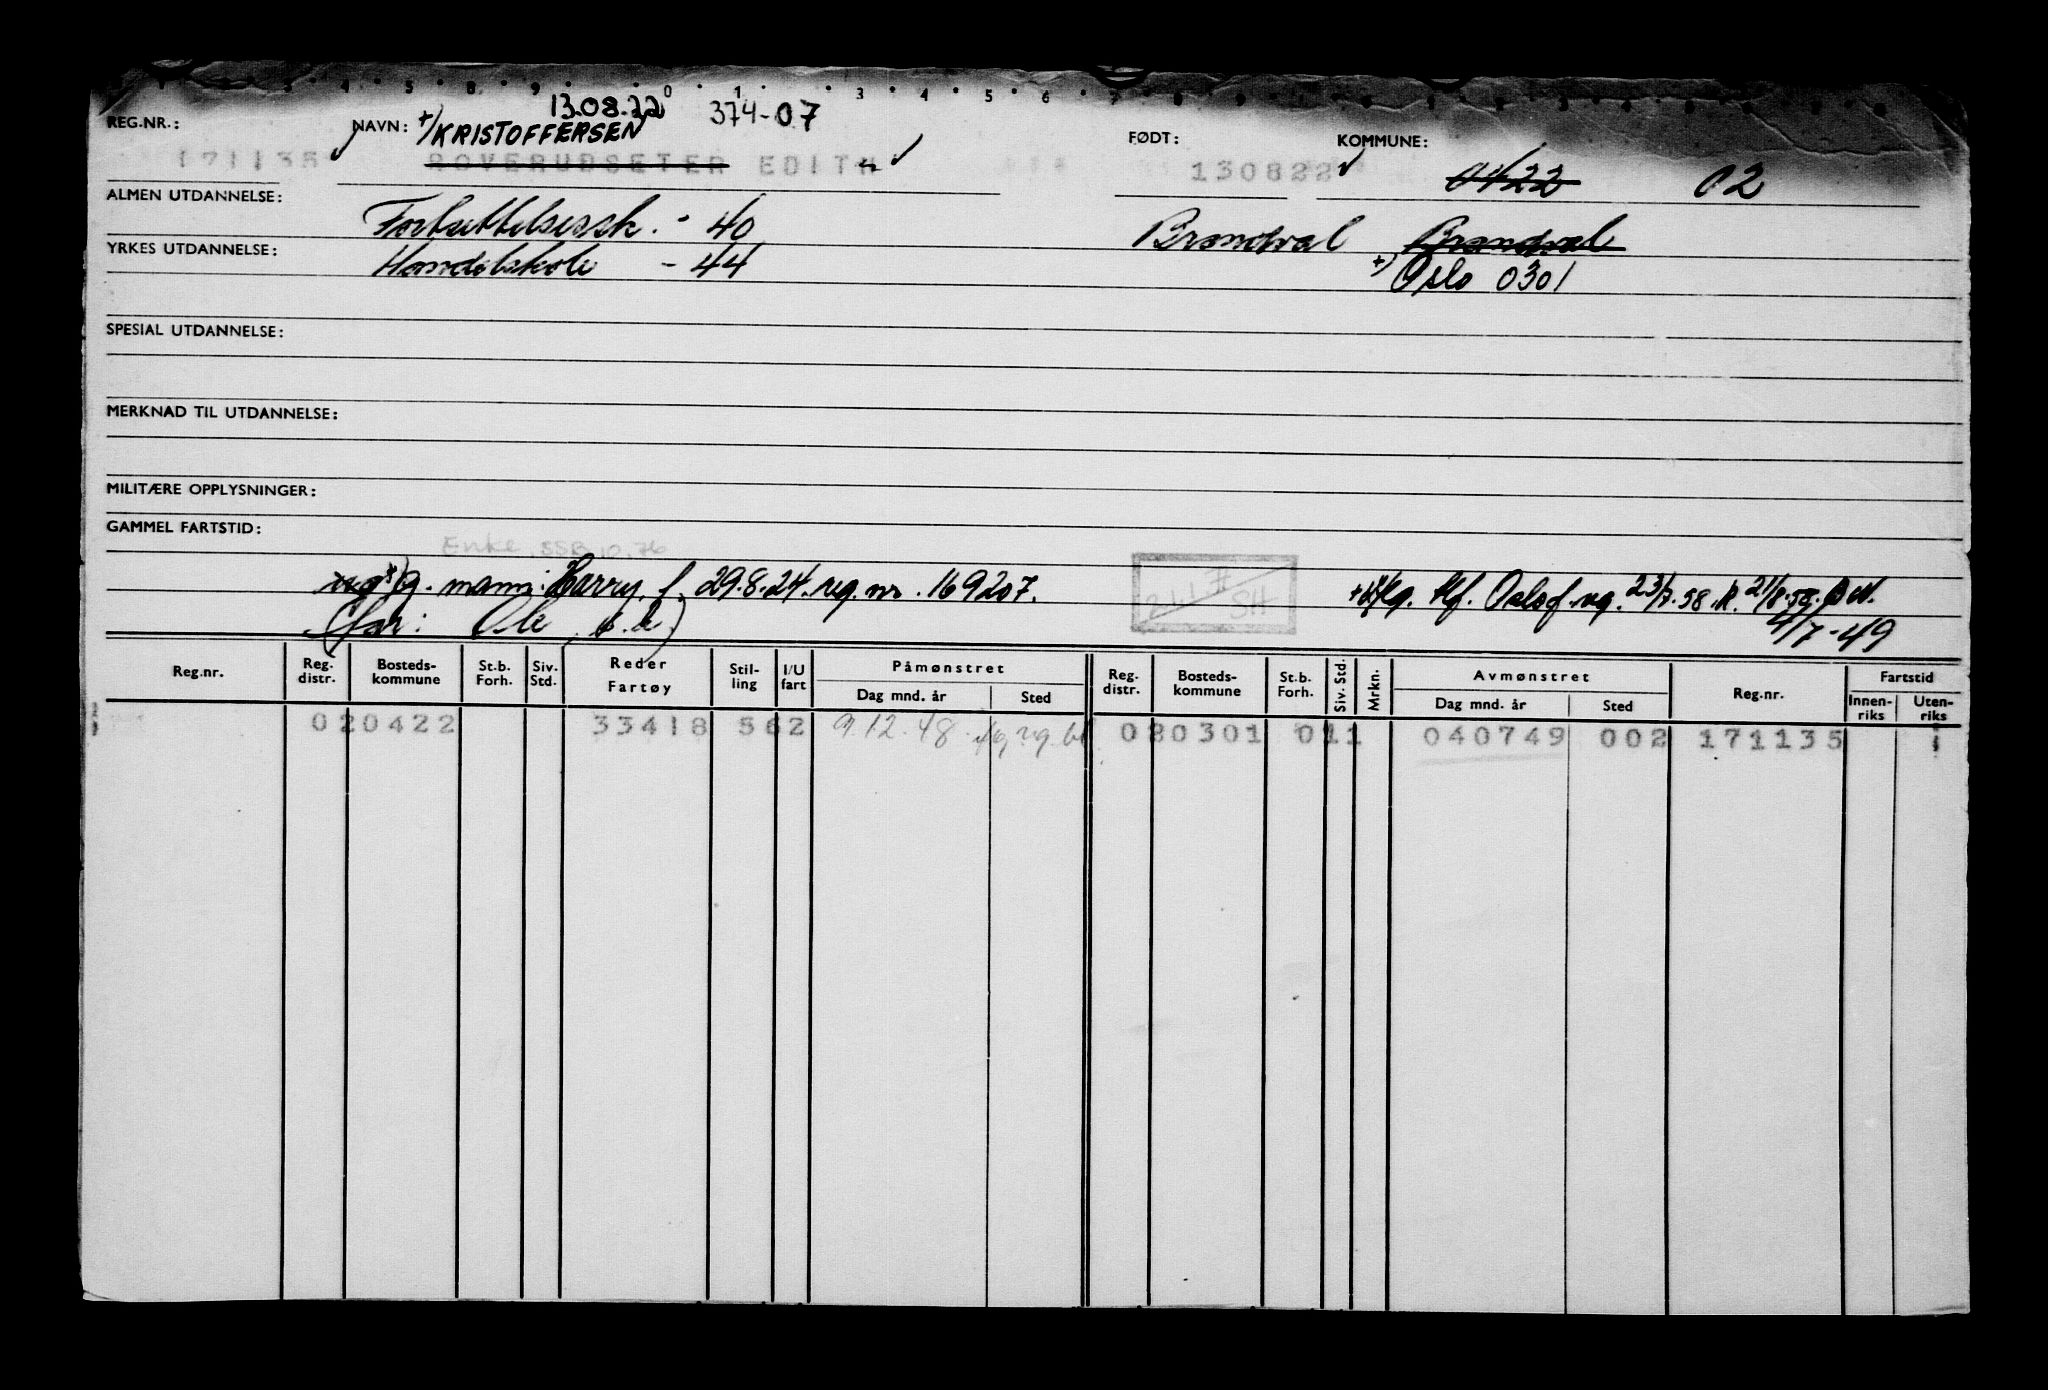 13.08.22 374-07
REG.NR.: NAVN: +) KRISTOFFERSEN FØDT: KOMMUNE:
171135 ROVERUDSETER EDITH 130822 0422 02
ALMEN UTDANNELSE: Fortsettelsessk. - 40 Brandval Brandval
YRKES UTDANNELSE: Handelskole - 44 +) Oslo 0301
SPESIAL UTDANNELSE:
MERKNAD TIL UTDANNELSE:
MILITÆRE OPPLYSNINGER:
GAMMEL FARTSTID:
Enke SSB 10.76
g. mann: Harry, f. 29.8.24. reg. nr. 169207.
(far: Ole, s.a)
21.1 SH
Oslo f. reg. 23/7.58. k. 21/8.58.
4/7-49
Reg.nr. Reg. distr. Bosteds-kommune St.b. Forh. Siv. Std. Reder Fartøy Stil-ling I/U fart Påmønstret Dag mnd. år Sted Reg. distr. Bosteds-kommune St.b. Forh. Siv. Std. Mrkn. Avmønstret Dag mnd. år Sted Reg.nr. Fartstid Innen-riks Uten-riks
020422 33418 562 9.12.48 080301 011 040749 002 171135